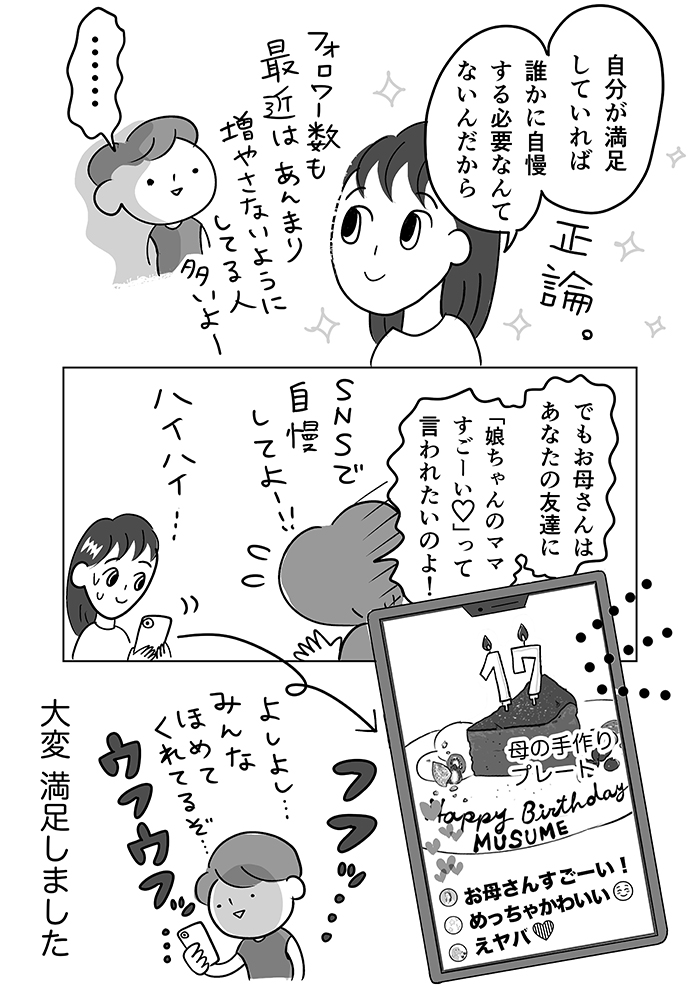 自分が満足
していれば
誰かに自慢
する必要なんて
ないんだから
正論。
フォロワー数も
最近はあんまり
増やさないように
してる人
多いよー
・・・・・・
でもお母さんは
あなたの友達に
「娘ちゃんのママ
すごーい♡」って
言われたいのよ！
SNSで
自慢
してよー!!
ハイハイ…
17
母の手作り
プレート
Happy Birthday
MUSUME
お母さんすごーい！
めっちゃかわいい😊
えヤバ♥
フフ…
よしよし…
みんな
ほめて
くれてるぞ…
ウフウフ…
大変 満足しました